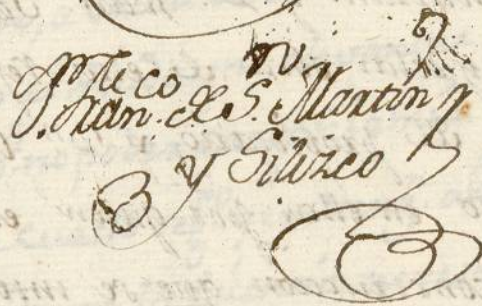 Fran.co de S.n Martin
y Siuizco